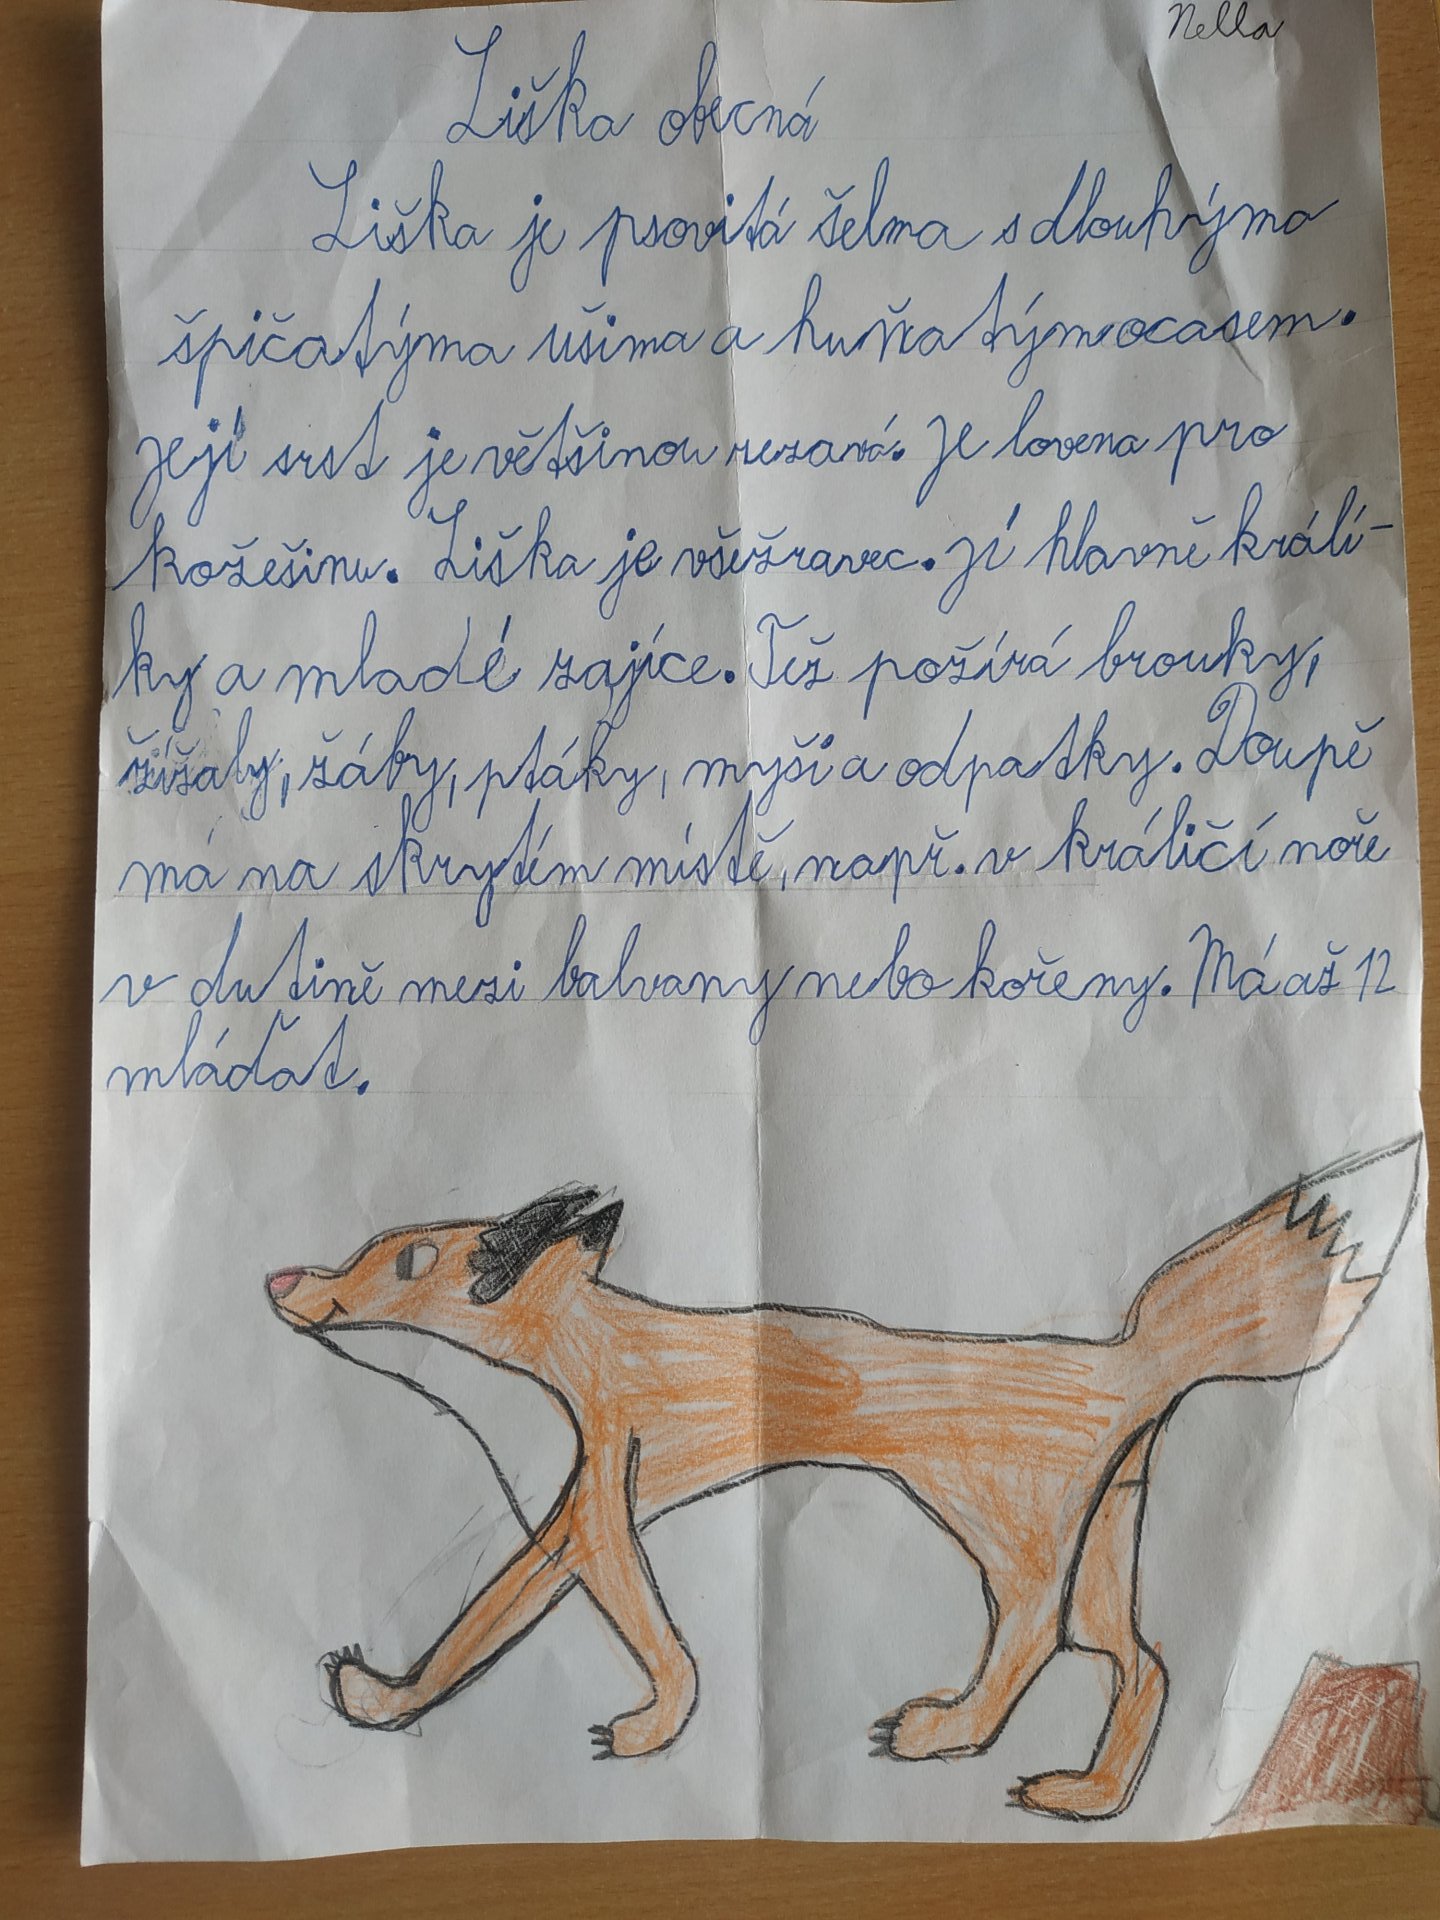 Nella
Liška obecná
Liška je psovitá šelma s dlouhýma
špičatýma ušima a huňatým ocasem.
Její srst je většinou rezavá. Je lovena pro
kožešinu. Liška je všežravec. Jí hlavně králí-
ky a mladé zajíce. Též požírá brouky,
žížaly, žáby, ptáky, myši a odpatky. Doupě
má na skrytém místě, např. v králičí noře
v dutině mezi balvany nebo kořeny. Má až 12
mláďat.